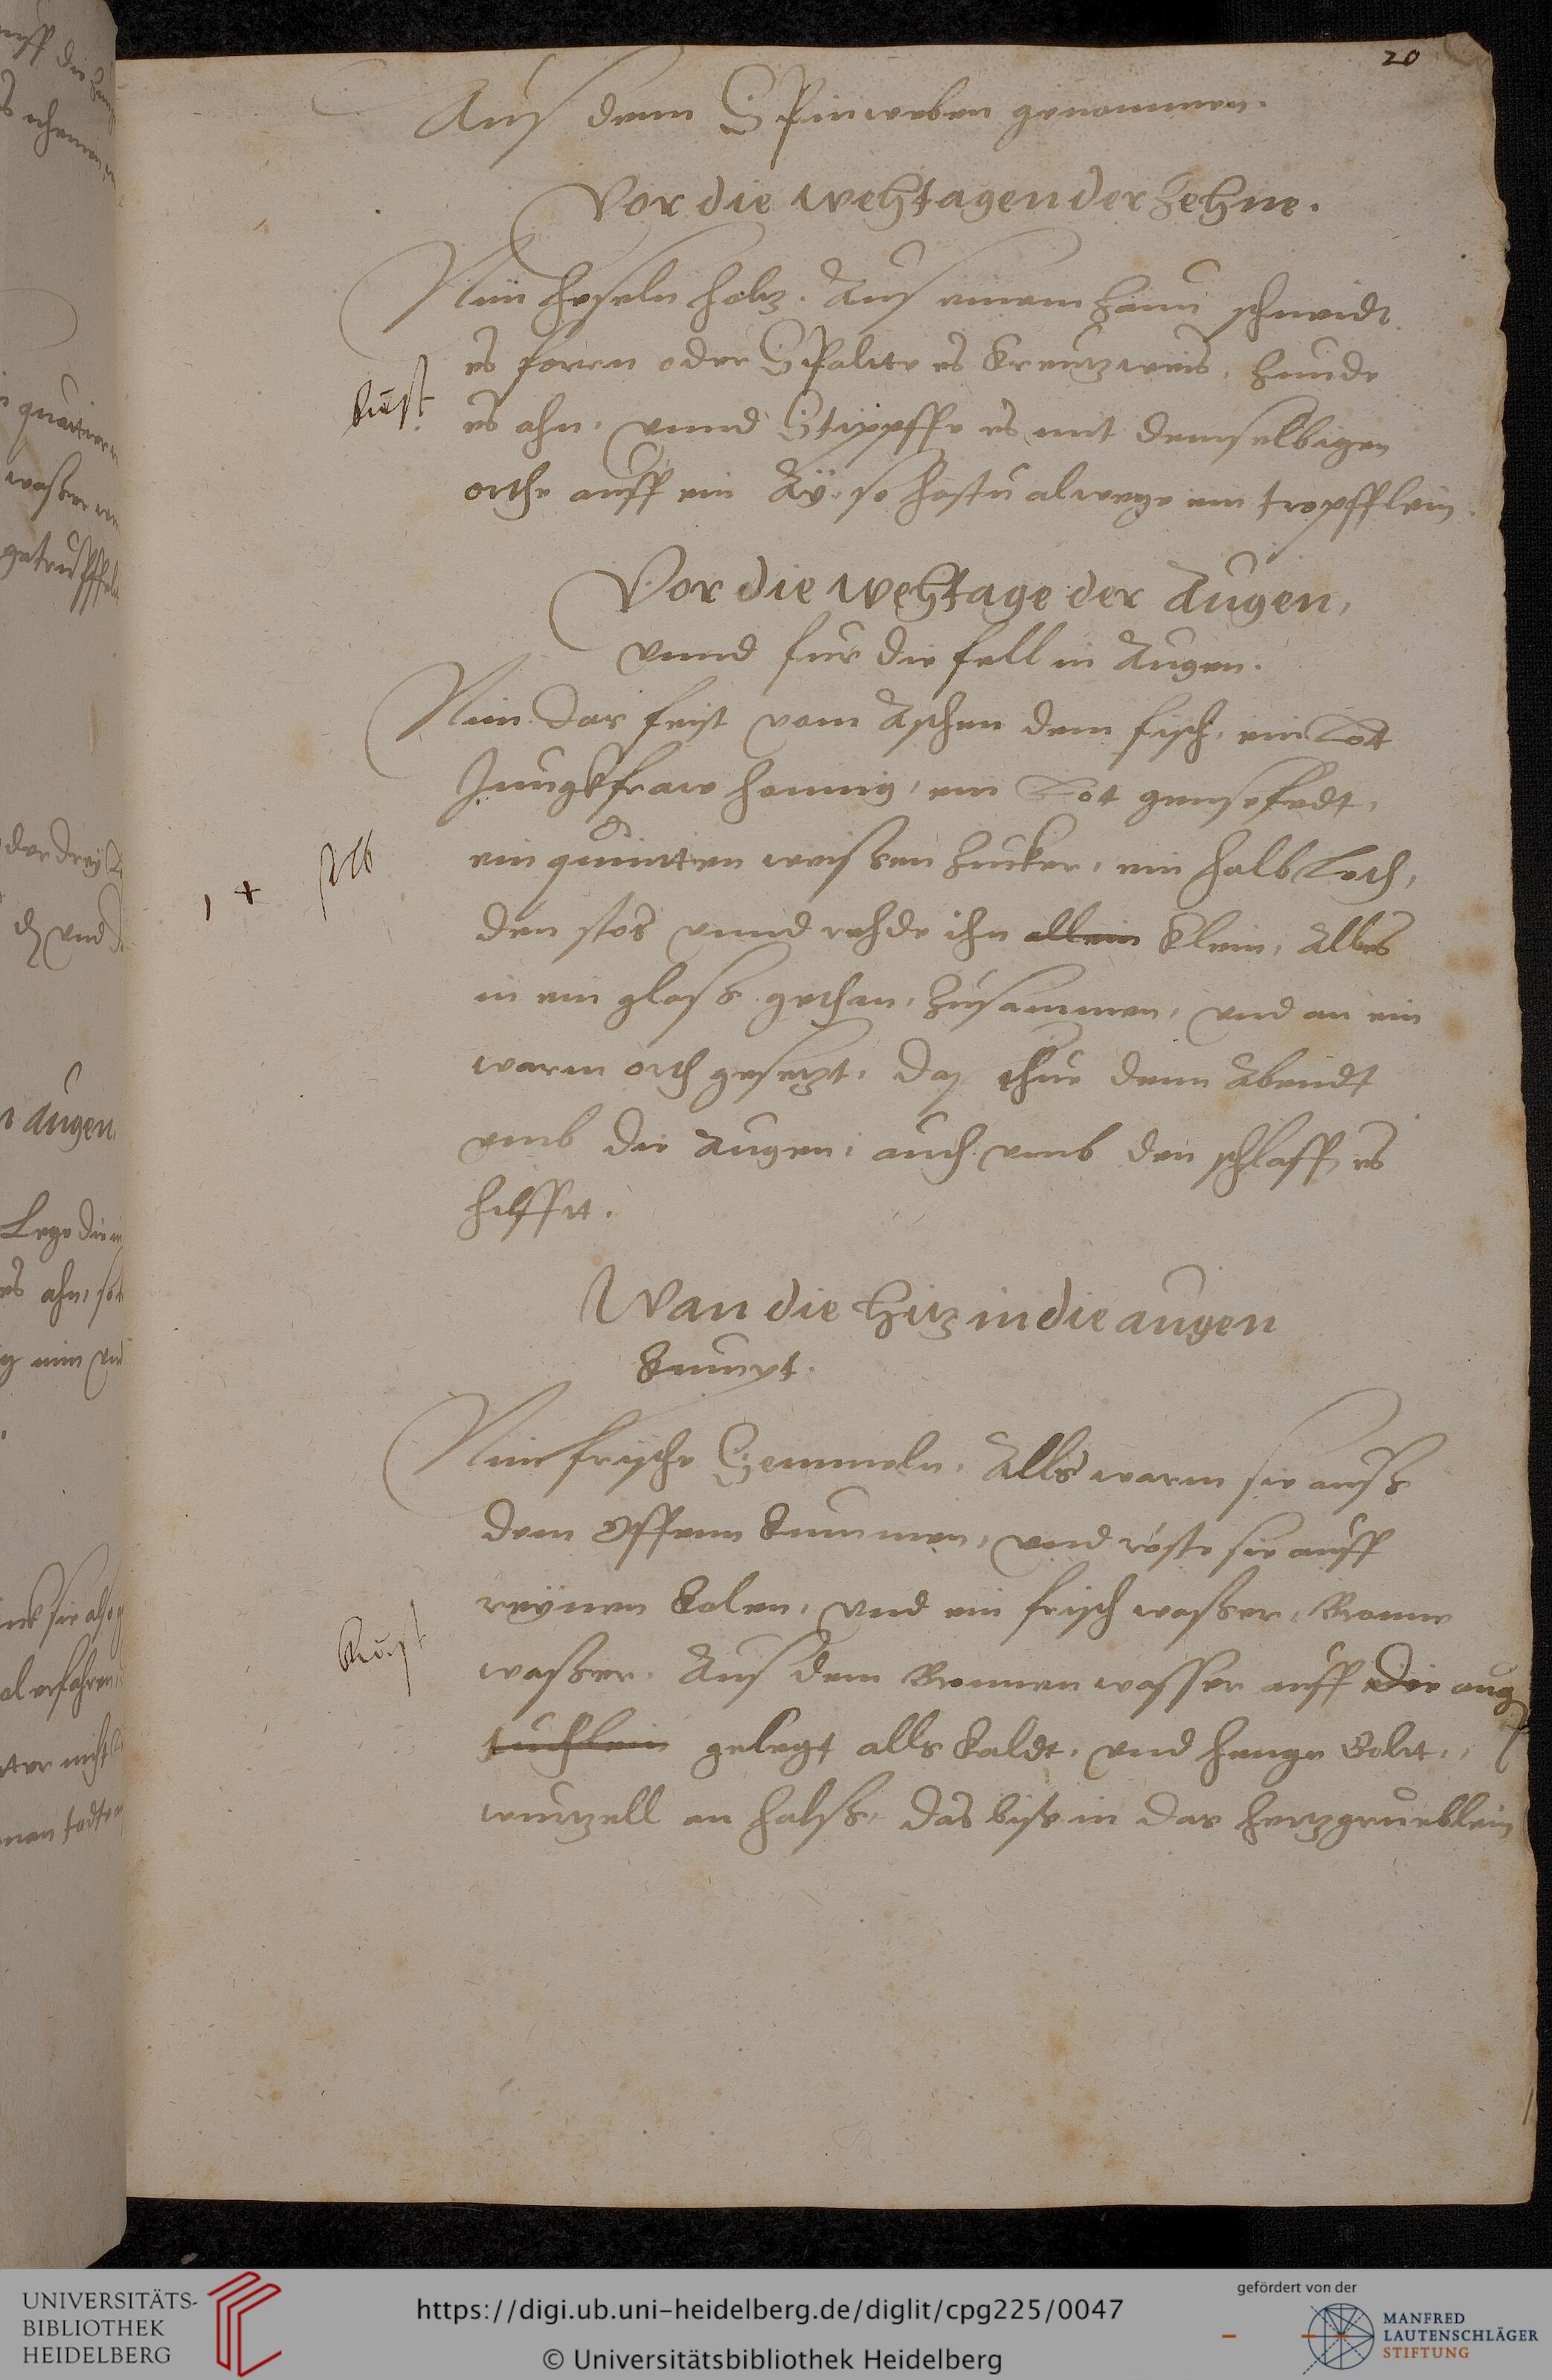 20
Aus denn Spinweben genommen.
Vor die wehtagen der Zehne.
Nim heseln holtz. Aus einem Zaun schneidt
es forrn oder Spaltte es Kreutzweis, Zunde
es ahn, vnnd Stippffe es mit demselbigen
orthe auff ein Aÿ, so hastu alwege ein tropfflein.
Vor die wehtage der Augen,
vnnd fur die fell in Augen.
Nim das feist vom Aschen dem fisch, ein Lot
Jungkfraw honnig, ein Lot gensefedt,
ein quintten weissen Zucker, ein halb Loth,
den stos vnnd rehde ihn allein klein, Alles
in ein glass gethan, Zusammen, vnd an ein
warm orth gesetzt, daz thue denn Abendt
vmb die Augen, auch vmb den schlaff, es
hilfft.
Wan die hitz in die augen
kumpt.
Nim frische Semmeln, Alls warm sie auss
dem Offenn kummen, vnd röste sie auff
reÿnen kolen, vnd ein frisch wasser, Bronne
wasser. Aus dem Bronnen wasser auff die aug
tuchlein gelegt alls kaldt, vnd henge
wurtzell an halss, das biss in das hertzgrueblein
UNIVERSITÄTS-
BIBLIOTHEK
HEIDELBERG
https://digi.ub.uni-heidelberg.de/diglit/cpg225/0047
© Universitätsbibliothek Heidelberg
gefördert von der
MANFRED
LAUTENSCHLÄGER
STIFTUNG